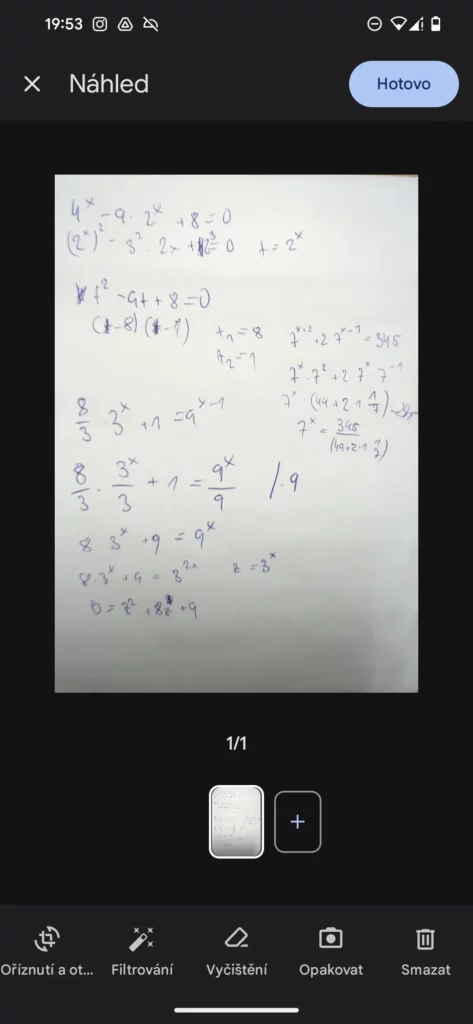 19:53
Náhled
Hotovo
4^x - 9 · 2^x + 8 = 0
(2^x)^2 - 3^2 · 2x + 2^3 = 0   t = 2^x
t^2 - 9t + 8 = 0
(t - 8) (t - 1)   t_1 = 8
t_2 = 1
7^{x+2} + 2 · 7^{x-1} = 345
7^x · 7^2 + 2 · 7^x · 7^{-1}
7^x · (49 + 2 · 1/7)
7^x = 345/(49+2·1/7)
8/3 · 3^x + 1 = 9^{x-1}
8/3 · 3^x/3 + 1 = 9^x/9   / · 9
8 · 3^x + 9 = 9^x
8 · 3^x + 9 = 3^{2x}   z = 3^x
0 = z^2 + 8z + 9
1/1
+
Oříznutí a ot...
Filtrování
Vyčištění
Opakovat
Smazat